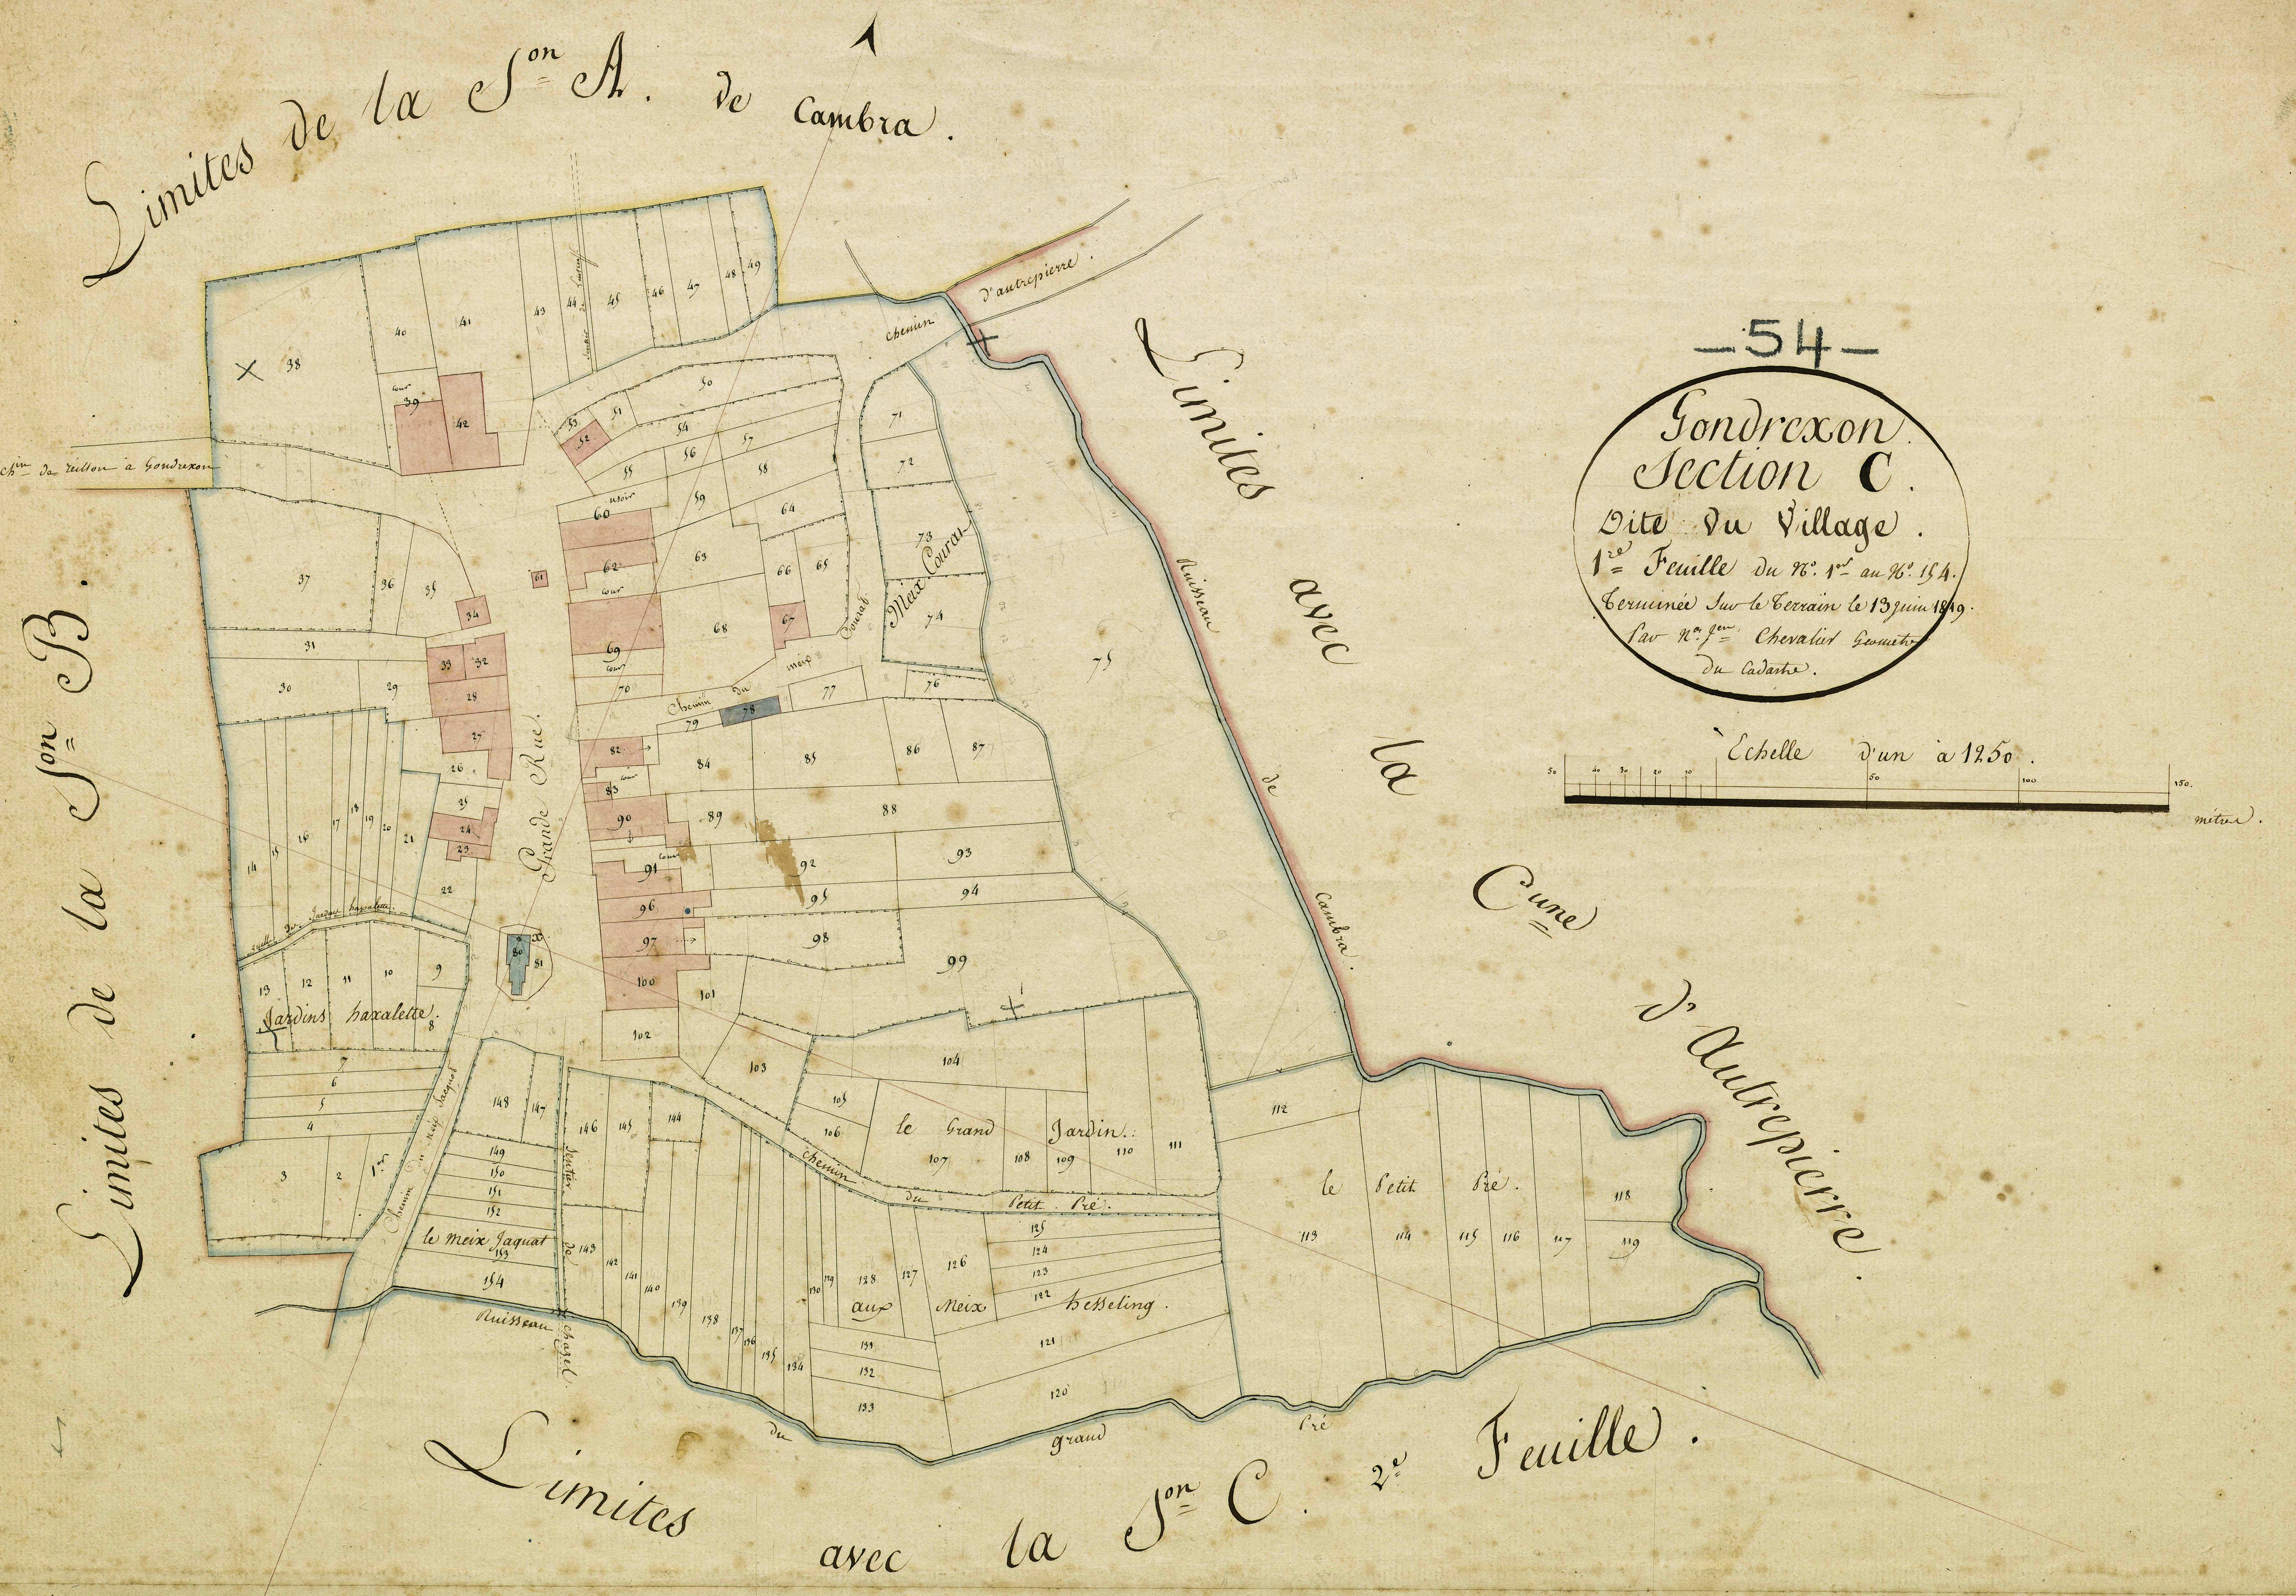 Limites de la Son A. de Cambra.
Limites de la Son B.
Limites avec la Cune d'Autrepierre.
Limites avec la Son C. 2e Feuille.
— 54 —
Gondrexon.
Section C.
Dite du Village.
1re Feuille du No. 1er au No. 154.
Terminée sur le Terrain le 13 juin 1819.
Par Chevalier Géomètre
du Cadastre.
Echelle d'un à 1250.
50 40 30 20 10 50 100 150.
mètres.
chemin d'autrepierre.
chin de reillon à Gondrexon
38
40
41
43
44
45
46
47
48
49
cour
39
42
50
51
53
52
54
55
56
57
58
59
usoir
60
61
62
cour
63
64
65
66
67
68
69
cour
70
71
72
73
Meix Couras
74
75
76
77
78
79
Chemin du meix Couras
Ruisseau de Cambra.
37
36
35
34
31
33
32
30
29
28
27
26
25
24
23
22
14
15
16
17
18
19
20
21
Grande Rue.
80
81
82
cour
83
84
85
86
87
88
89
90
91
cour
92
93
94
95
96
97
98
99
100
101
102
103
ruelle des Jardins haxalette.
13
12
11
10
9
Jardins haxalette.
8
7
6
5
4
3
2
1er
Chemin du meix Jacquot
148
147
149
150
151
152
le meix Jaquat
153
154
Sentier de chazel.
146
145
144
143
142
141
140
139
138
137
136
135
134
104
105
106
le Grand Jardin.
107
108
109
110
111
chemin du Petit Pré.
130
129
128
127
126
125
124
123
122
aux Meix hesseling.
121
120
131
132
133
112
le Petit Pré.
113
114
115
116
117
118
119
Ruisseau du grand Pré